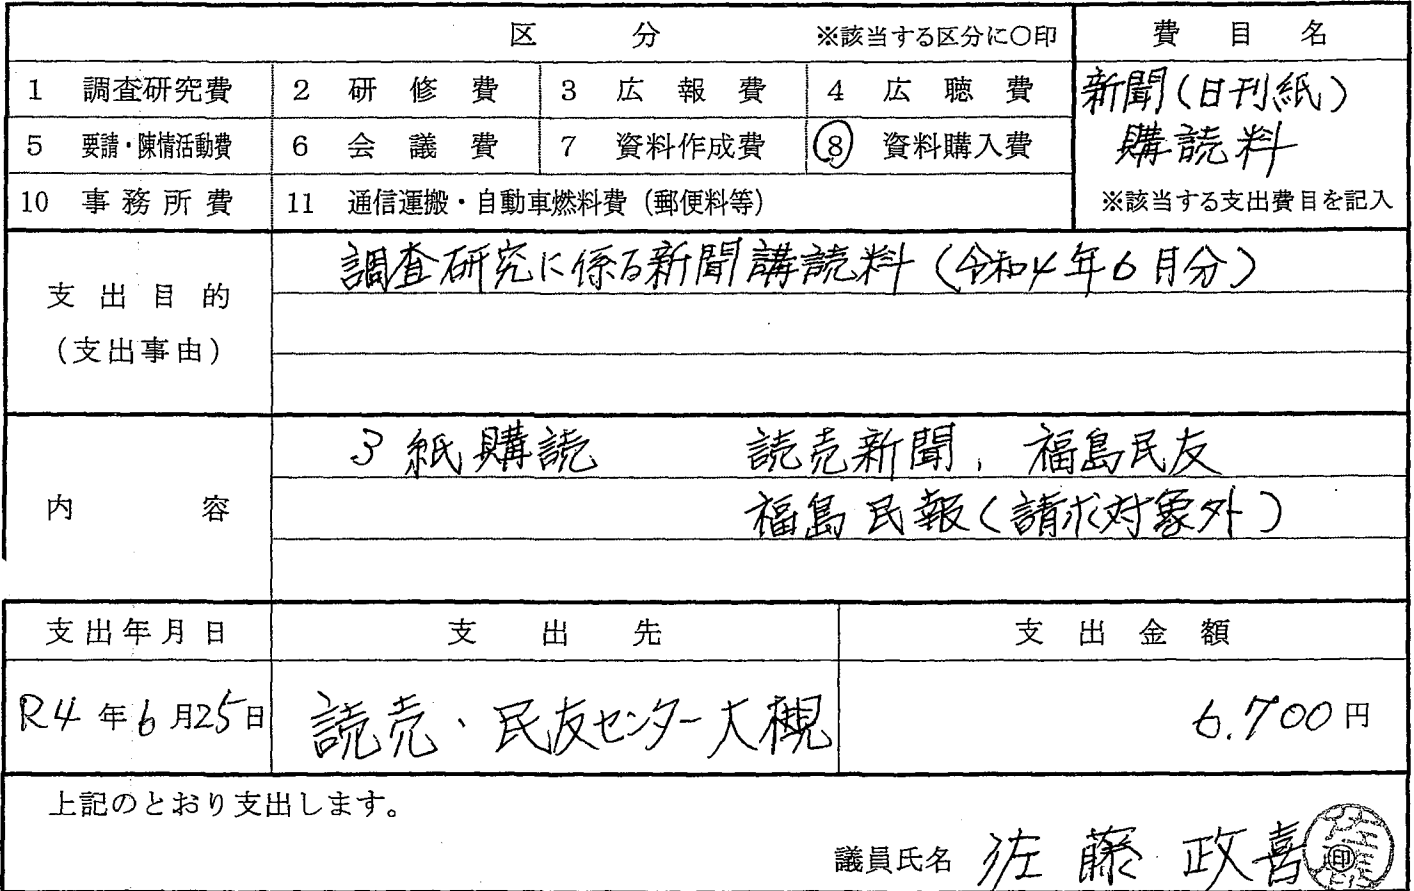 区 分 ※該当する区分に○印 費 目 名
1 調査研究費 2 研 修 費 3 広 報 費 4 広 聴 費
新聞(日刊紙)
5 要請・陳情活動費 6 会 議 費 7 資料作成費 8 資料購入費
購読料
10 事 務 所 費 11 通信運搬・自動車燃料費(郵便料等)
※該当する支出費目を記入
支 出 目 的
(支出事由)
調査研究に係る新聞講読料(令和4年6月分)
内 容
3紙購読 読売新聞, 福島民友
福島民報(請求対象外)
支出年月日 支 出 先 支 出 金 額
R4年6月25日 読売・民友センター大槻 6.700円
上記のとおり支出します。
議員氏名 佐藤 政喜 印